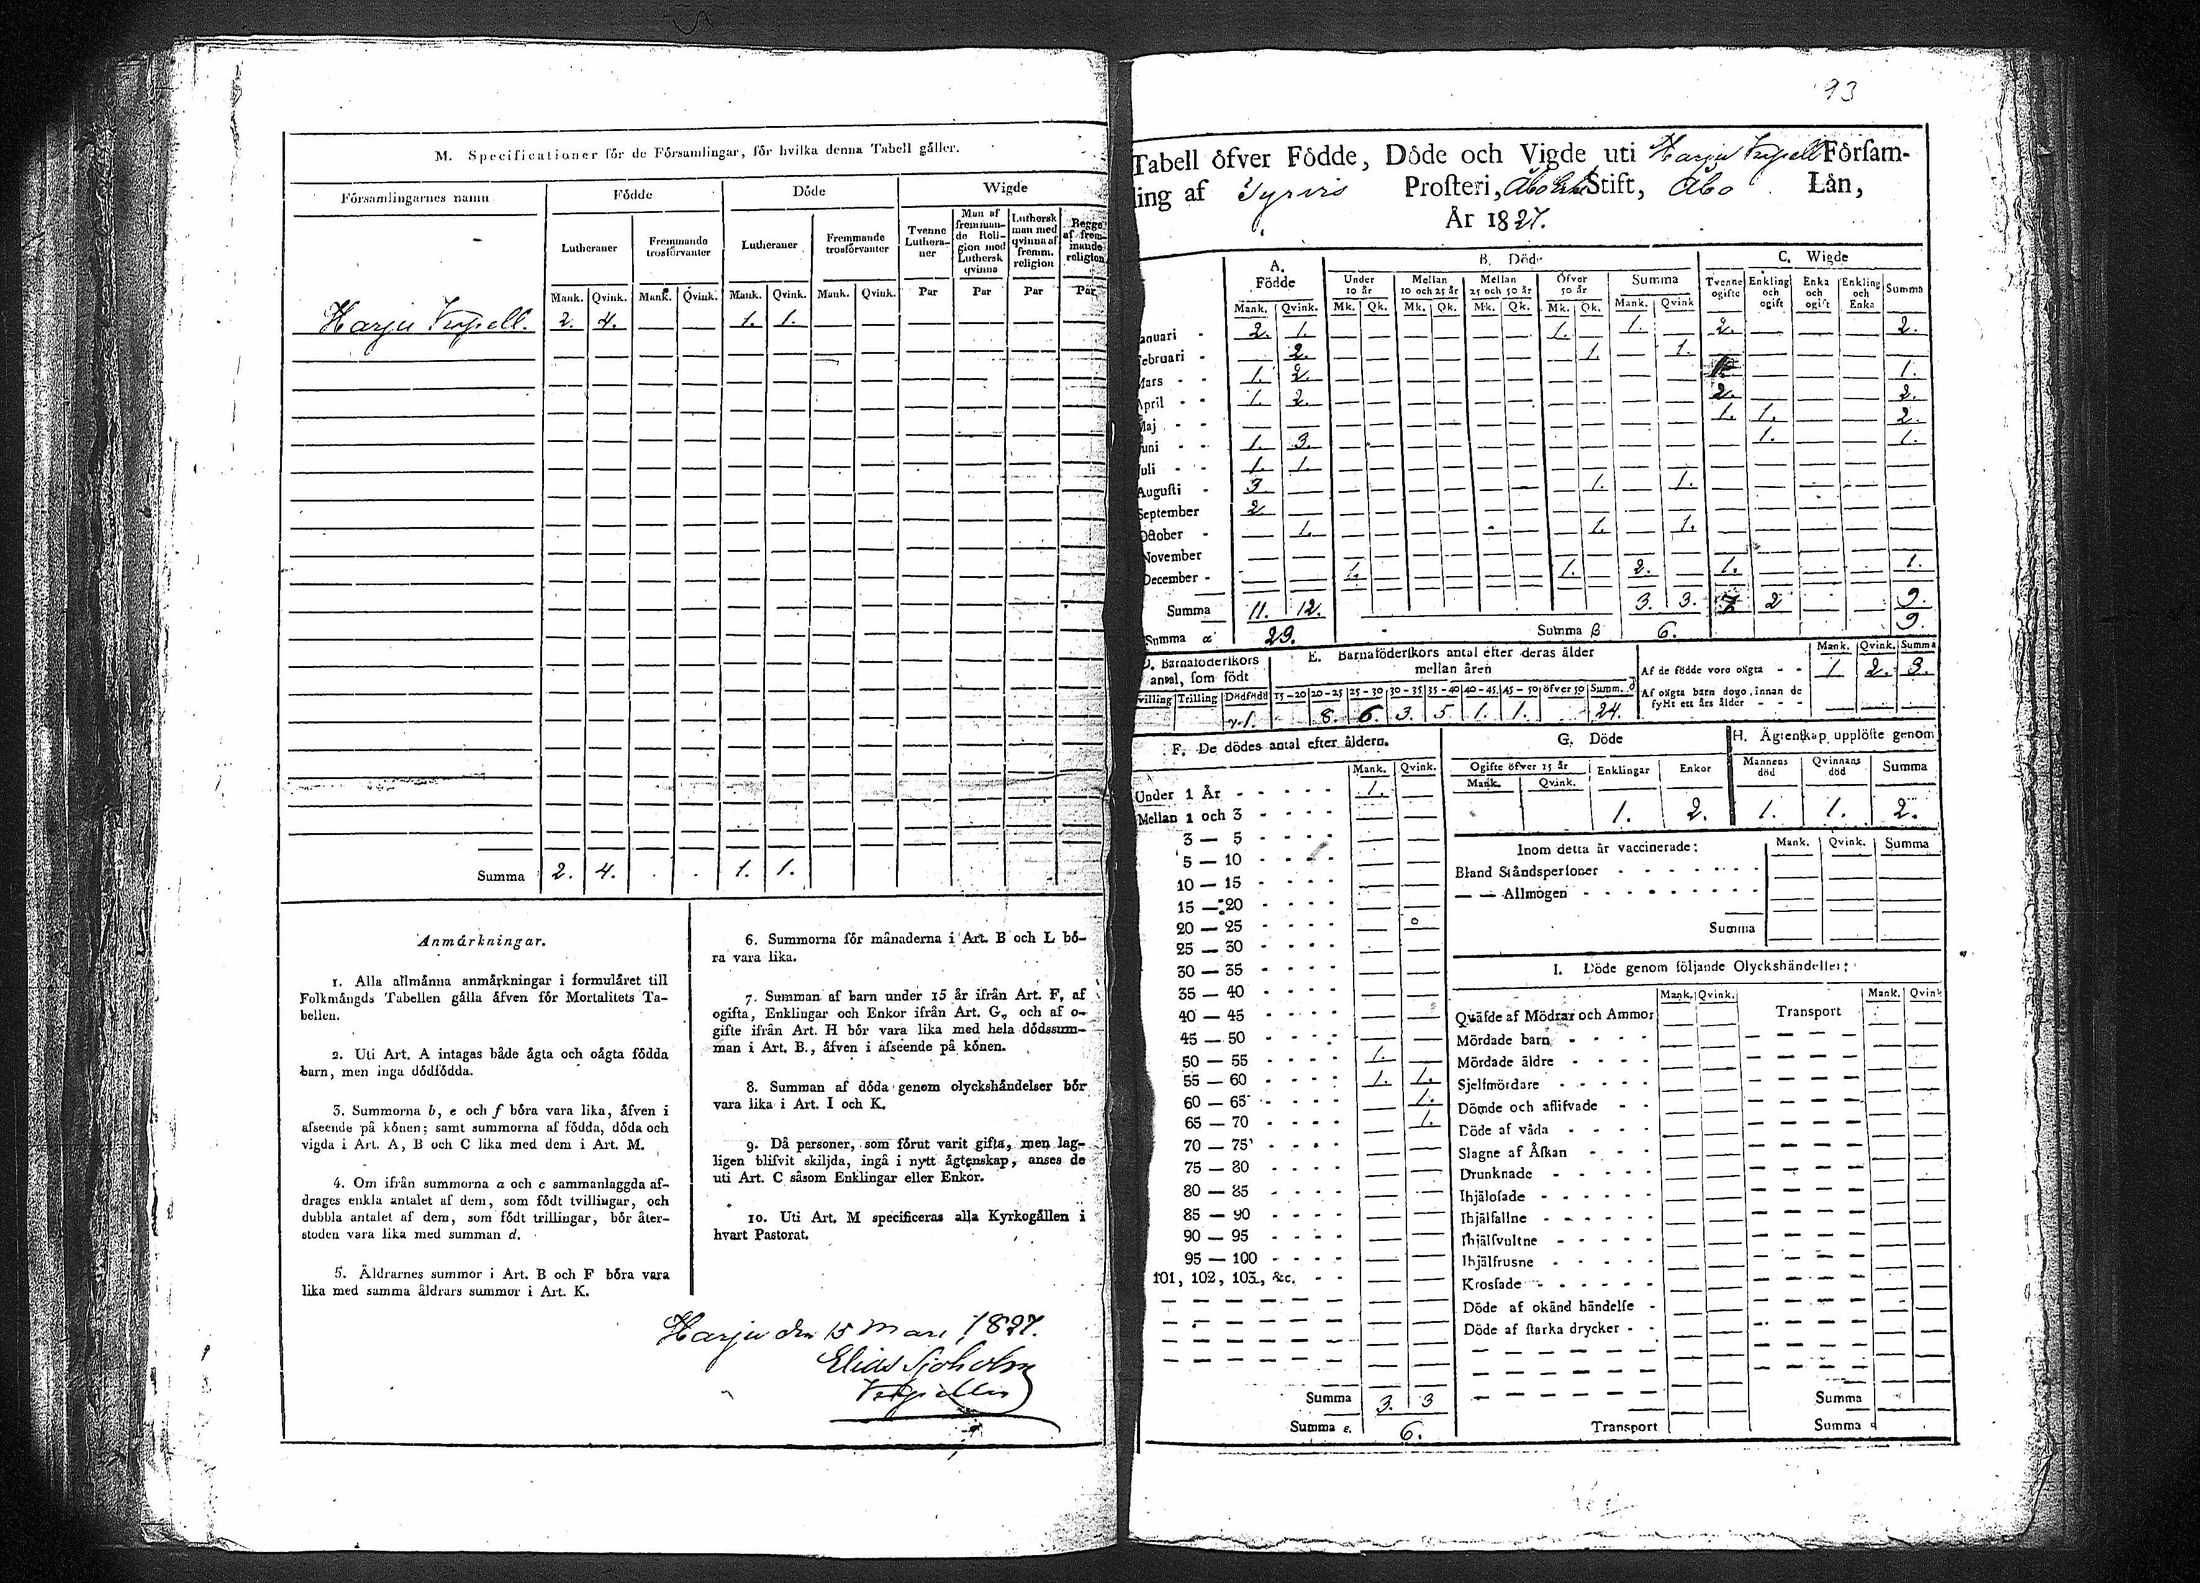 M. Specificationer för de Församlingar, för hvilka denna Tabell gäller.
Församlingarnes namn
Födde
Döde
Wigde
Lutheraner
Fremmande trosförvanter
Lutheraner
Fremmande trosförvanter
Tvenne Lutheraner
Man af fremmande Religion med Luthersk qvinna
Luthersk man med qvinna af fremm. religion
Begge af fremmande religion
Mank. Qvink. Mank. Qvink. Mank. Qvink. Mank. Qvink. Par Par Par Par
Harju Capell. 2. 4. — — 1. 1. — — — — — —
Summa 2. 4. . . 1. 1.
Anmärkningar.
1. Alla allmänna anmärkningar i formuläret till
Folkmängds Tabellen gälla äfven för Mortalitets Ta-
bellen.
2. Uti Art. A intagas både ägta och oägta födda
barn, men inga dödfödda.
3. Summorna b, e och f böra vara lika, äfven i
afseende på könen; samt summorna af födda, döda och
vigda i Art. A, B och C lika med dem i Art. M.
4. Om ifrån summorna a och c sammanlaggda af-
drages enkla antalet af dem, som födt tvillingar, och
dubbla antalet af dem, som födt trillingar, bör åter-
stoden vara lika med summan d.
5. Äldrarnes summor i Art. B och F böra vara
lika med samma äldrars summor i Art. K.
6. Summorna för månaderna i Art. B och L bö-
ra vara lika.
7. Summan af barn under 15 år ifrån Art. F, af
ogifta, Enklingar och Enkor ifrån Art. G., och af o-
gifte ifrån Art. H bör vara lika med hela dödssum-
man i Art. B., äfven i afseende på könen.
8. Summan af döda genom olyckshändelser bör
vara lika i Art. I och K.
9. Då personer, som förut varit gifta, men lag-
ligen blifvit skiljda, ingå i nytt ägtenskap, anses de
uti Art. C såsom Enklingar eller Enkor.
10. Uti Art. M specificeras alla Kyrkogällen i
hvart Pastorat.
Harju den 15 Mars 1827.
Elias Sjöholm
93
Tabell öfver Födde, Döde och Vigde uti Harju Capell Församling
af Tyrvis Prosteri, Åbo Stift, Åbo Län,
År 1827.
A. Födde
B. Döde
C. Wigde
Under 10 år
Mellan 10 och 25 år
Mellan 25 och 50 år
Öfver 50 år
Summa
Tvenne ogifte
Enkling och ogift
Enka och ogift
Enkling och Enka
Summa
Mank. Qvink. Mk. Qk. Mk. Qk. Mk. Qk. Mk. Qk. Mank. Qvink
Januari - 2. 1. — — — — — — 1. — 1. — 2. — — — 2.
Februari - — 2. — — — — — — — 1. — 1. — — — —
Mars - - 1. 2. — — — — — — — — — — — — — 1.
April - - 1. 2. — — — — — — — — — — 2. — — — 2.
Maj - - — — — — — — — — — — — — 1. 1. — — 2.
Juni - - 1. 3. — — — — — — — — — — — 1. — — 1.
Juli - - 1. 1. — — — — — — — — — — — — — —
Augusti - 3 — — — — — — — — 1. — 1. — — — —
September 2 — — — — — — — — — — — — — — —
October - — 1. — — — — — — — 1. — 1. — — — —
November — — — — — — — — — — — — — — — —
December - — — 1. — — — — — 1. — 2. — 1. — — — 1.
Summa 11. 12. 3. 3. 7 2 — — 9.
Summa α 23. Summa β 6. 9.
D. Barnaföderskors antal, som födt
E. Barnaföderskors antal efter deras ålder mellan åren
Mank. Qvink. Summa
Tvilling Trilling Dödfödd
15-20 20-25 25-30 30-35 35-40 40-45 45-50 öfver 50 Summ. d
8. 6. 3. 5 1. 1. 24.
Af de födde voro oägta - - 1. 2. 3.
Af oägta barn dogo, innan de fyllt ett års ålder - - - — — —
F. De dödes antal efter åldern.
Mank. Qvink.
Under 1 År 1. —
Mellan 1 och 3 — —
3 — 5 — —
5 — 10 — —
10 — 15 — —
15 — 20 — —
20 — 25 — —
25 — 30 — —
30 — 35 — —
35 — 40 — —
40 — 45 — —
45 — 50 — —
50 — 55 1. —
55 — 60 1. 1.
60 — 65 — 1.
65 — 70 — 1.
70 — 75 — —
75 — 80 — —
80 — 85 — —
85 — 90 — —
90 — 95 — —
95 — 100 — —
101, 102, 103, &c. — —
Summa 3. 3
Summa e. 6.
G. Döde
Ogifte öfver 15 år
Enklingar
Enkor
Mank. Qvink.
1. 2.
H. Ägtenskap upplöste genom
Mannens död
Qvinnans död
Summa
1. 1. 2.
Inom detta år vaccinerade:
Mank. Qvink. Summa
Bland Ståndspersoner
— — Allmogen
Summa
I. Döde genom följande Olyckshändelser:
Mank. Qvink. Transport Mank. Qvink
Qväfde af Mödrar och Ammor
Mördade barn
Mördade äldre
Sjelfmördare
Dömde och aflifvade
Döde af våda
Slagne af Åskan
Drunknade
Ihjälosade
Ihjälfallne
Ihjälsvultne
Ihjälfrusne
Krossade
Döde af okänd händelse
Döde af starka drycker
Summa
Transport
Summa